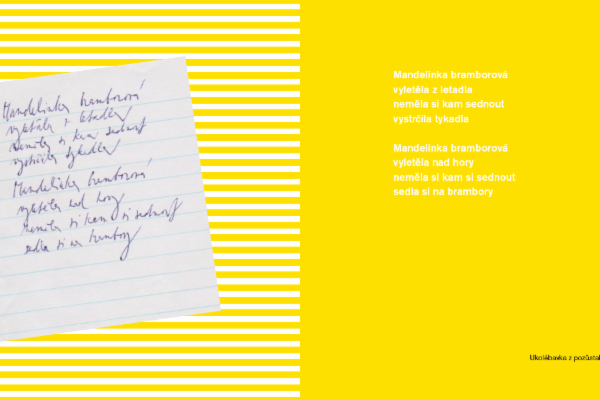 Mandelinka bramborová
vyletěla z letadla
neměla si kam sednout
vystrčila tykadla
Mandelinka bramborová
vyletěla nad hory
neměla si kam si sednout
sedla si na brambory
Mandelinka bramborová
vyletěla z letadla
neměla si kam sednout
vystrčila tykadla
Mandelinka bramborová
vyletěla nad hory
neměla si kam si sednout
sedla si na brambory
Ukolébavka z